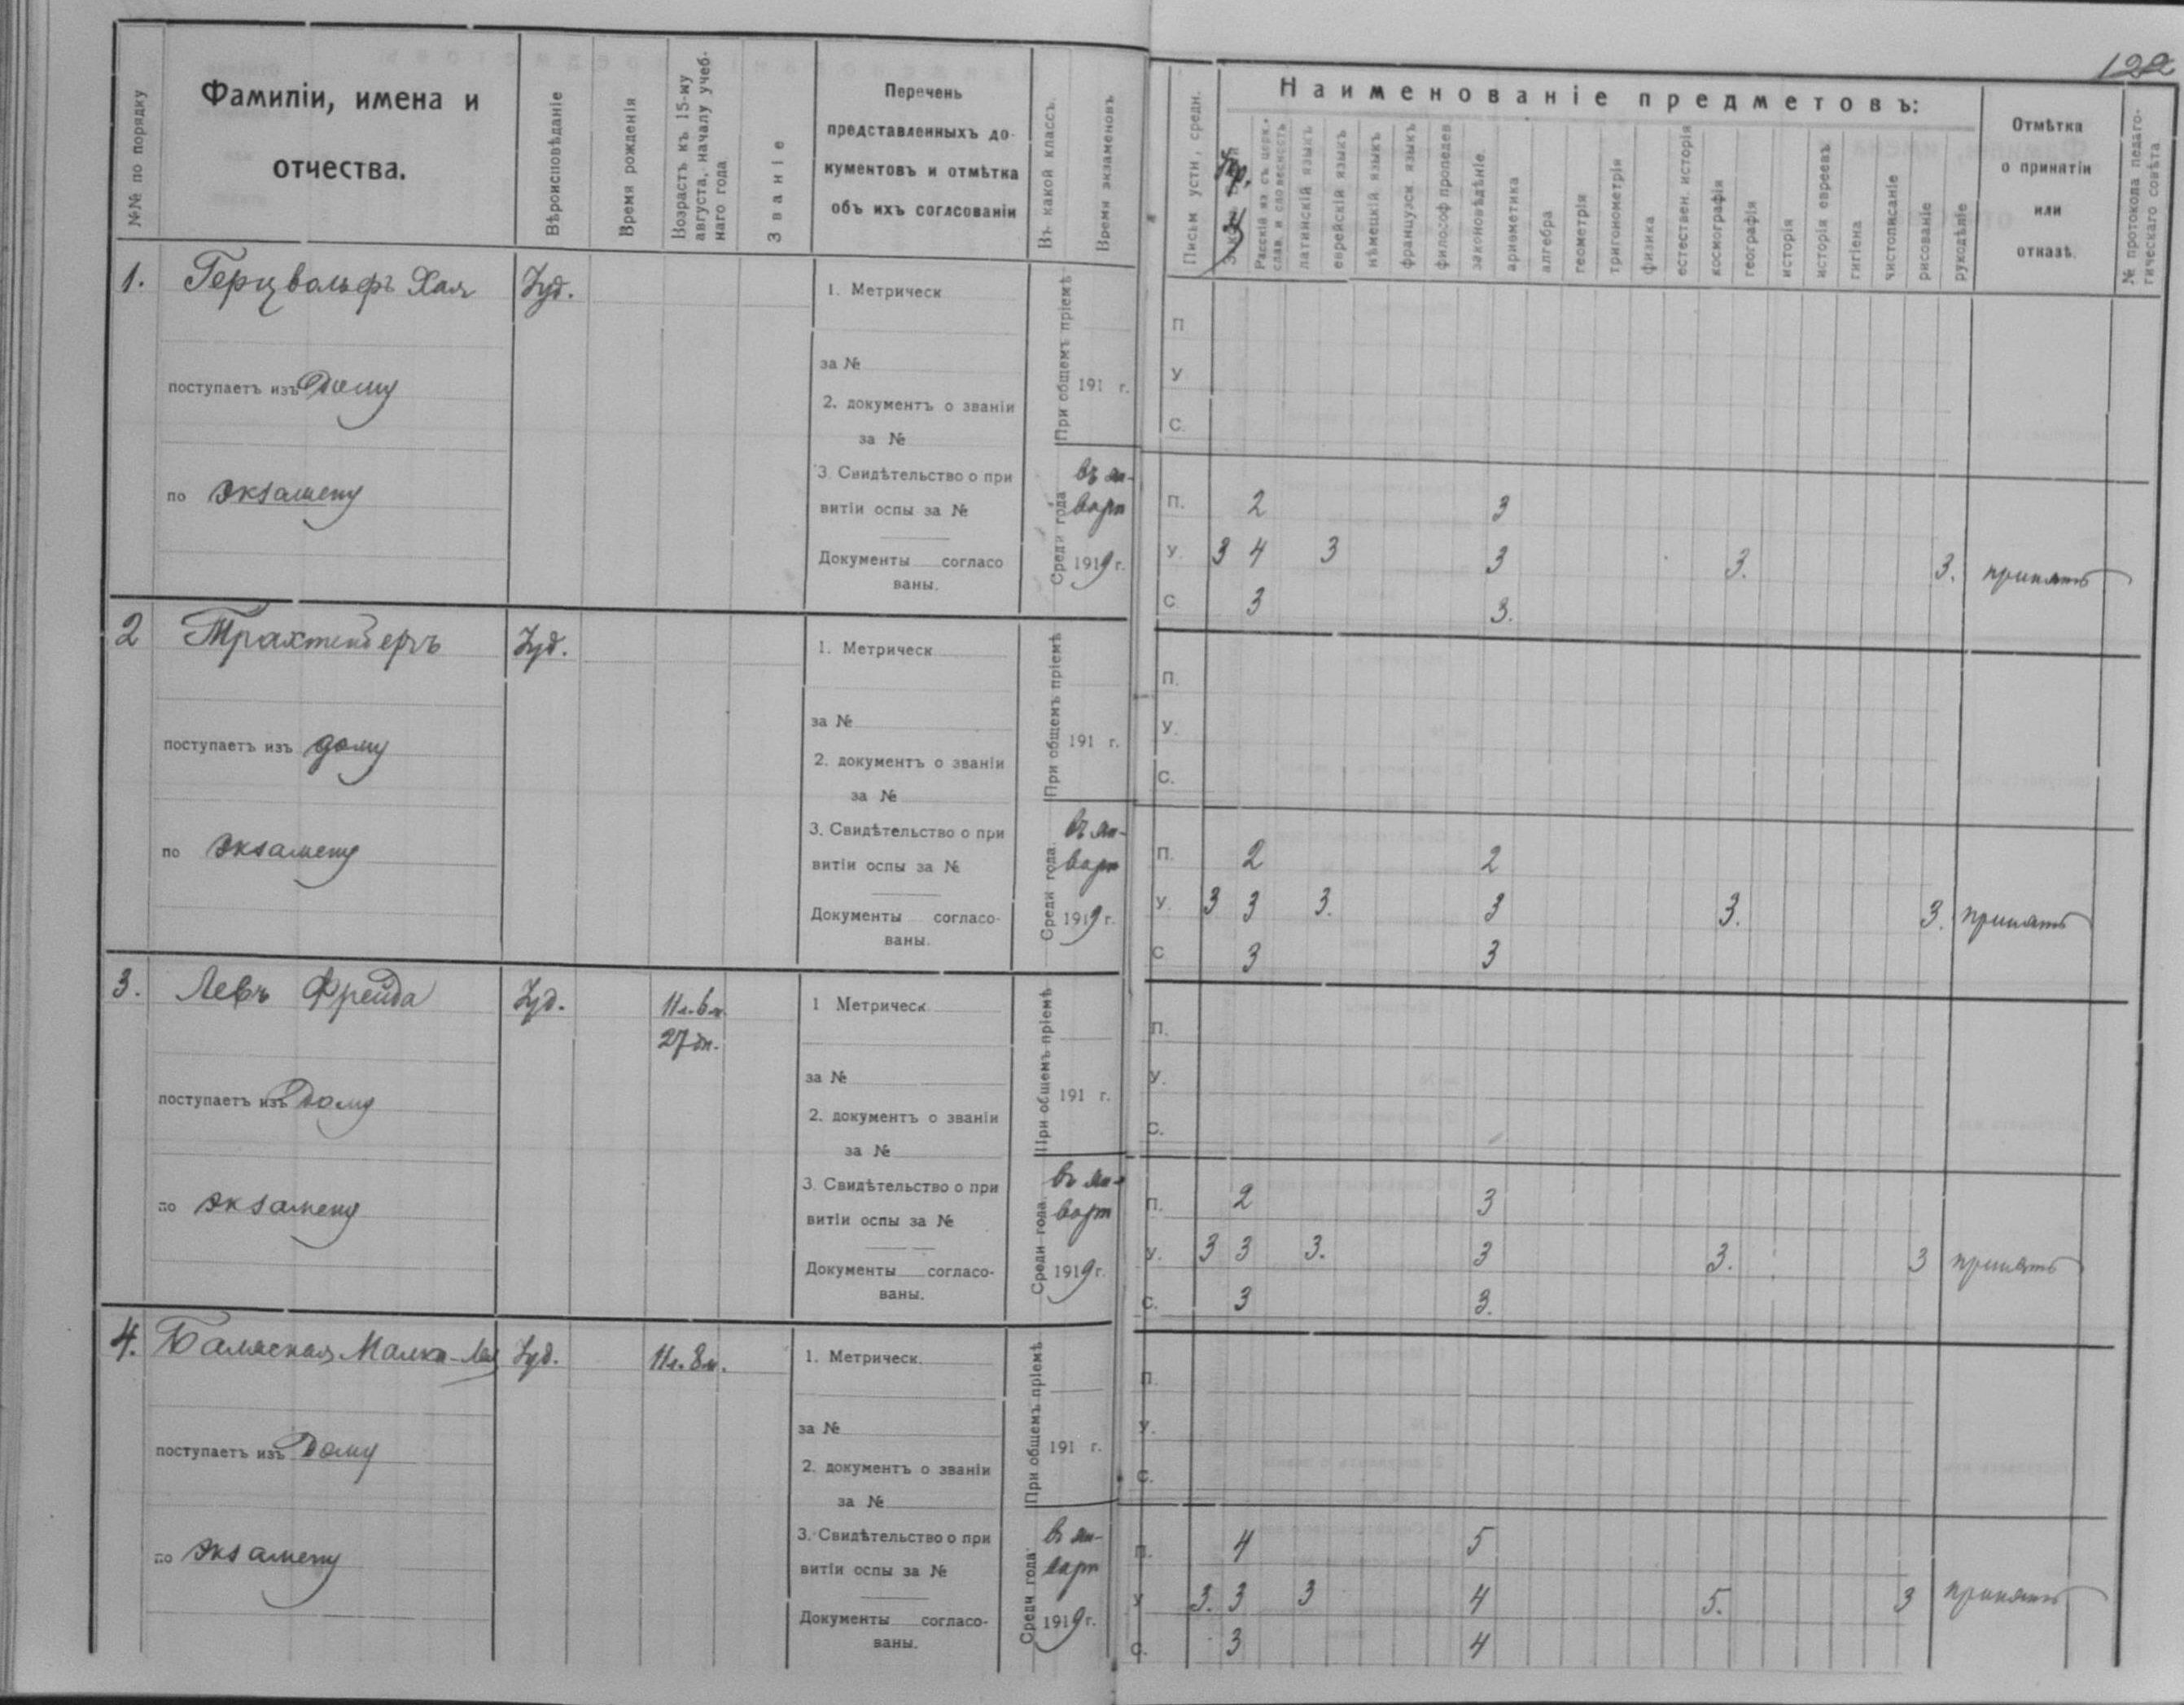 122
№№ по порядку
Фамиліи, имена и
отчества.
Вѣроисповѣданіе
Время рожденія
Возрастъ къ 15-му
августа, началу учеб-
наго года
Званіе
Перечень
представленныхъ до-
кументовъ и отмѣтка
объ ихъ соглсованіи
Въ какой классъ.
Время экзаменовъ
Письм устн, средн.
Наименованіе предметовъ:
Укр.
латинскій языкъ
еврейскій языкъ
нѣмецкій языкъ
французск языкъ
философ пропедев
законовѣдѣніе
ариѳметика
алгебра
геометрія
тригонометрія
физика
естествен. исторія
космографія
географія
исторія
исторія евреевъ
гигіена
чистописаніе
рисованіе
рукодѣліе
Отмѣтка
о принятіи
или
отказѣ.
№ протокола педаго-
гическаго совѣта
1. Герцвольфъ Хая Іуд.
поступаетъ изъ дому
по экзамену
1. Метрическ
за №
2. документъ о званіи
за №
3. Свидѣтельство о при
витіи оспы за №
Документы согласо
ваны.
При общемъ пріемѣ 191 г.
Среди года въ январѣ 1919 г.
П
У
С.
П. 2 3
У. 3 4 3 3 3. 3. принять
С 3 3.
2 Трахтенбергъ Іуд.
поступаетъ изъ дому
по экзамену
1. Метрическ
за №
2. документъ о званіи
за №
3. Свидѣтельство о при
витіи оспы за №
Документы согласо-
ваны.
При общемъ пріемѣ 191 г.
Среди года. въ январѣ 1919 г.
П.
У.
С.
П. 2 2
У. 3 3 3. 3 3. 3. принять
С 3 3
3. Левъ Фрейда Іуд. 11л.6м.
27дн.
поступаетъ изъ дому
по экзамену
1 Метрическ
за №
2. документъ о званіи
за №
3. Свидѣтельство о при
витіи оспы за №
Документы согласо-
ваны.
При общемъ пріемѣ 191 г.
Среди года. въ январѣ 1919 г.
П.
У.
С.
П. 2 3
У. 3 3 3. 3 3. 3 принять
С. 3 3.
4. Малка Іуд. 11л.8м.
поступаетъ изъ дому
по экзамену
1. Метрическ.
за №
2. документъ о званіи
за №
3. Свидѣтельство о при
витіи оспы за №
Документы согласо-
ваны.
При общемъ пріемѣ 191 г.
Среди года. въ январѣ 1919 г.
П.
У.
С.
П. 4 5
У 3. 3 3 4 5. 3 принять
С. 3 4